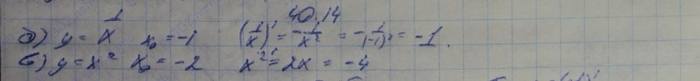 40.14
а) y = 1/x x₀ = -1 (1/x)' = -1/x² = -1/(-1)² = -1.
б) y = x² x₀ = -2 x²' = 2x = -4